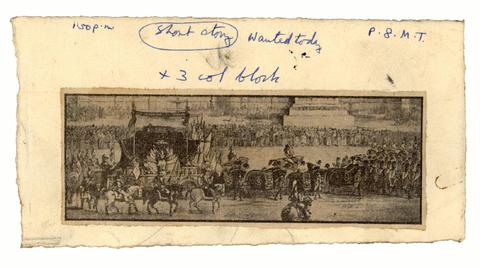 1.50 p.m Short story Wanted today P.&M.T.
x 3 col block